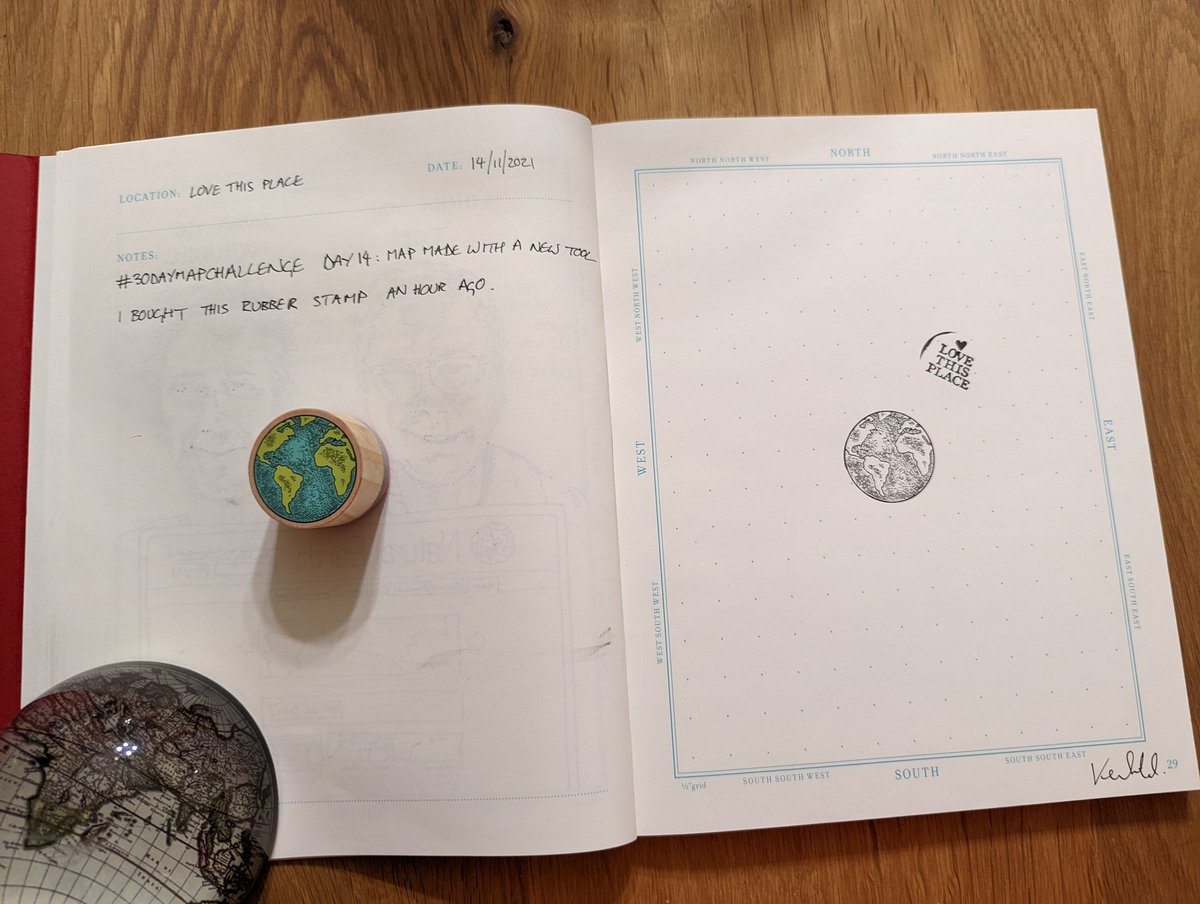 LOCATION: LOVE THIS PLACE
DATE: 14/11/2021
NOTES:
#30DAYMAPCHALLENGE DAY 14: MAP MADE WITH A NEW TOOL
I BOUGHT THIS RUBBER STAMP AN HOUR AGO.
NORTH NORTH WEST
NORTH
NORTH NORTH EAST
WEST NORTH WEST
EAST NORTH EAST
LOVE
THIS
PLACE
WEST
EAST
WEST SOUTH WEST
EAST SOUTH EAST
⅓"grid
SOUTH SOUTH WEST
SOUTH
SOUTH SOUTH EAST
29